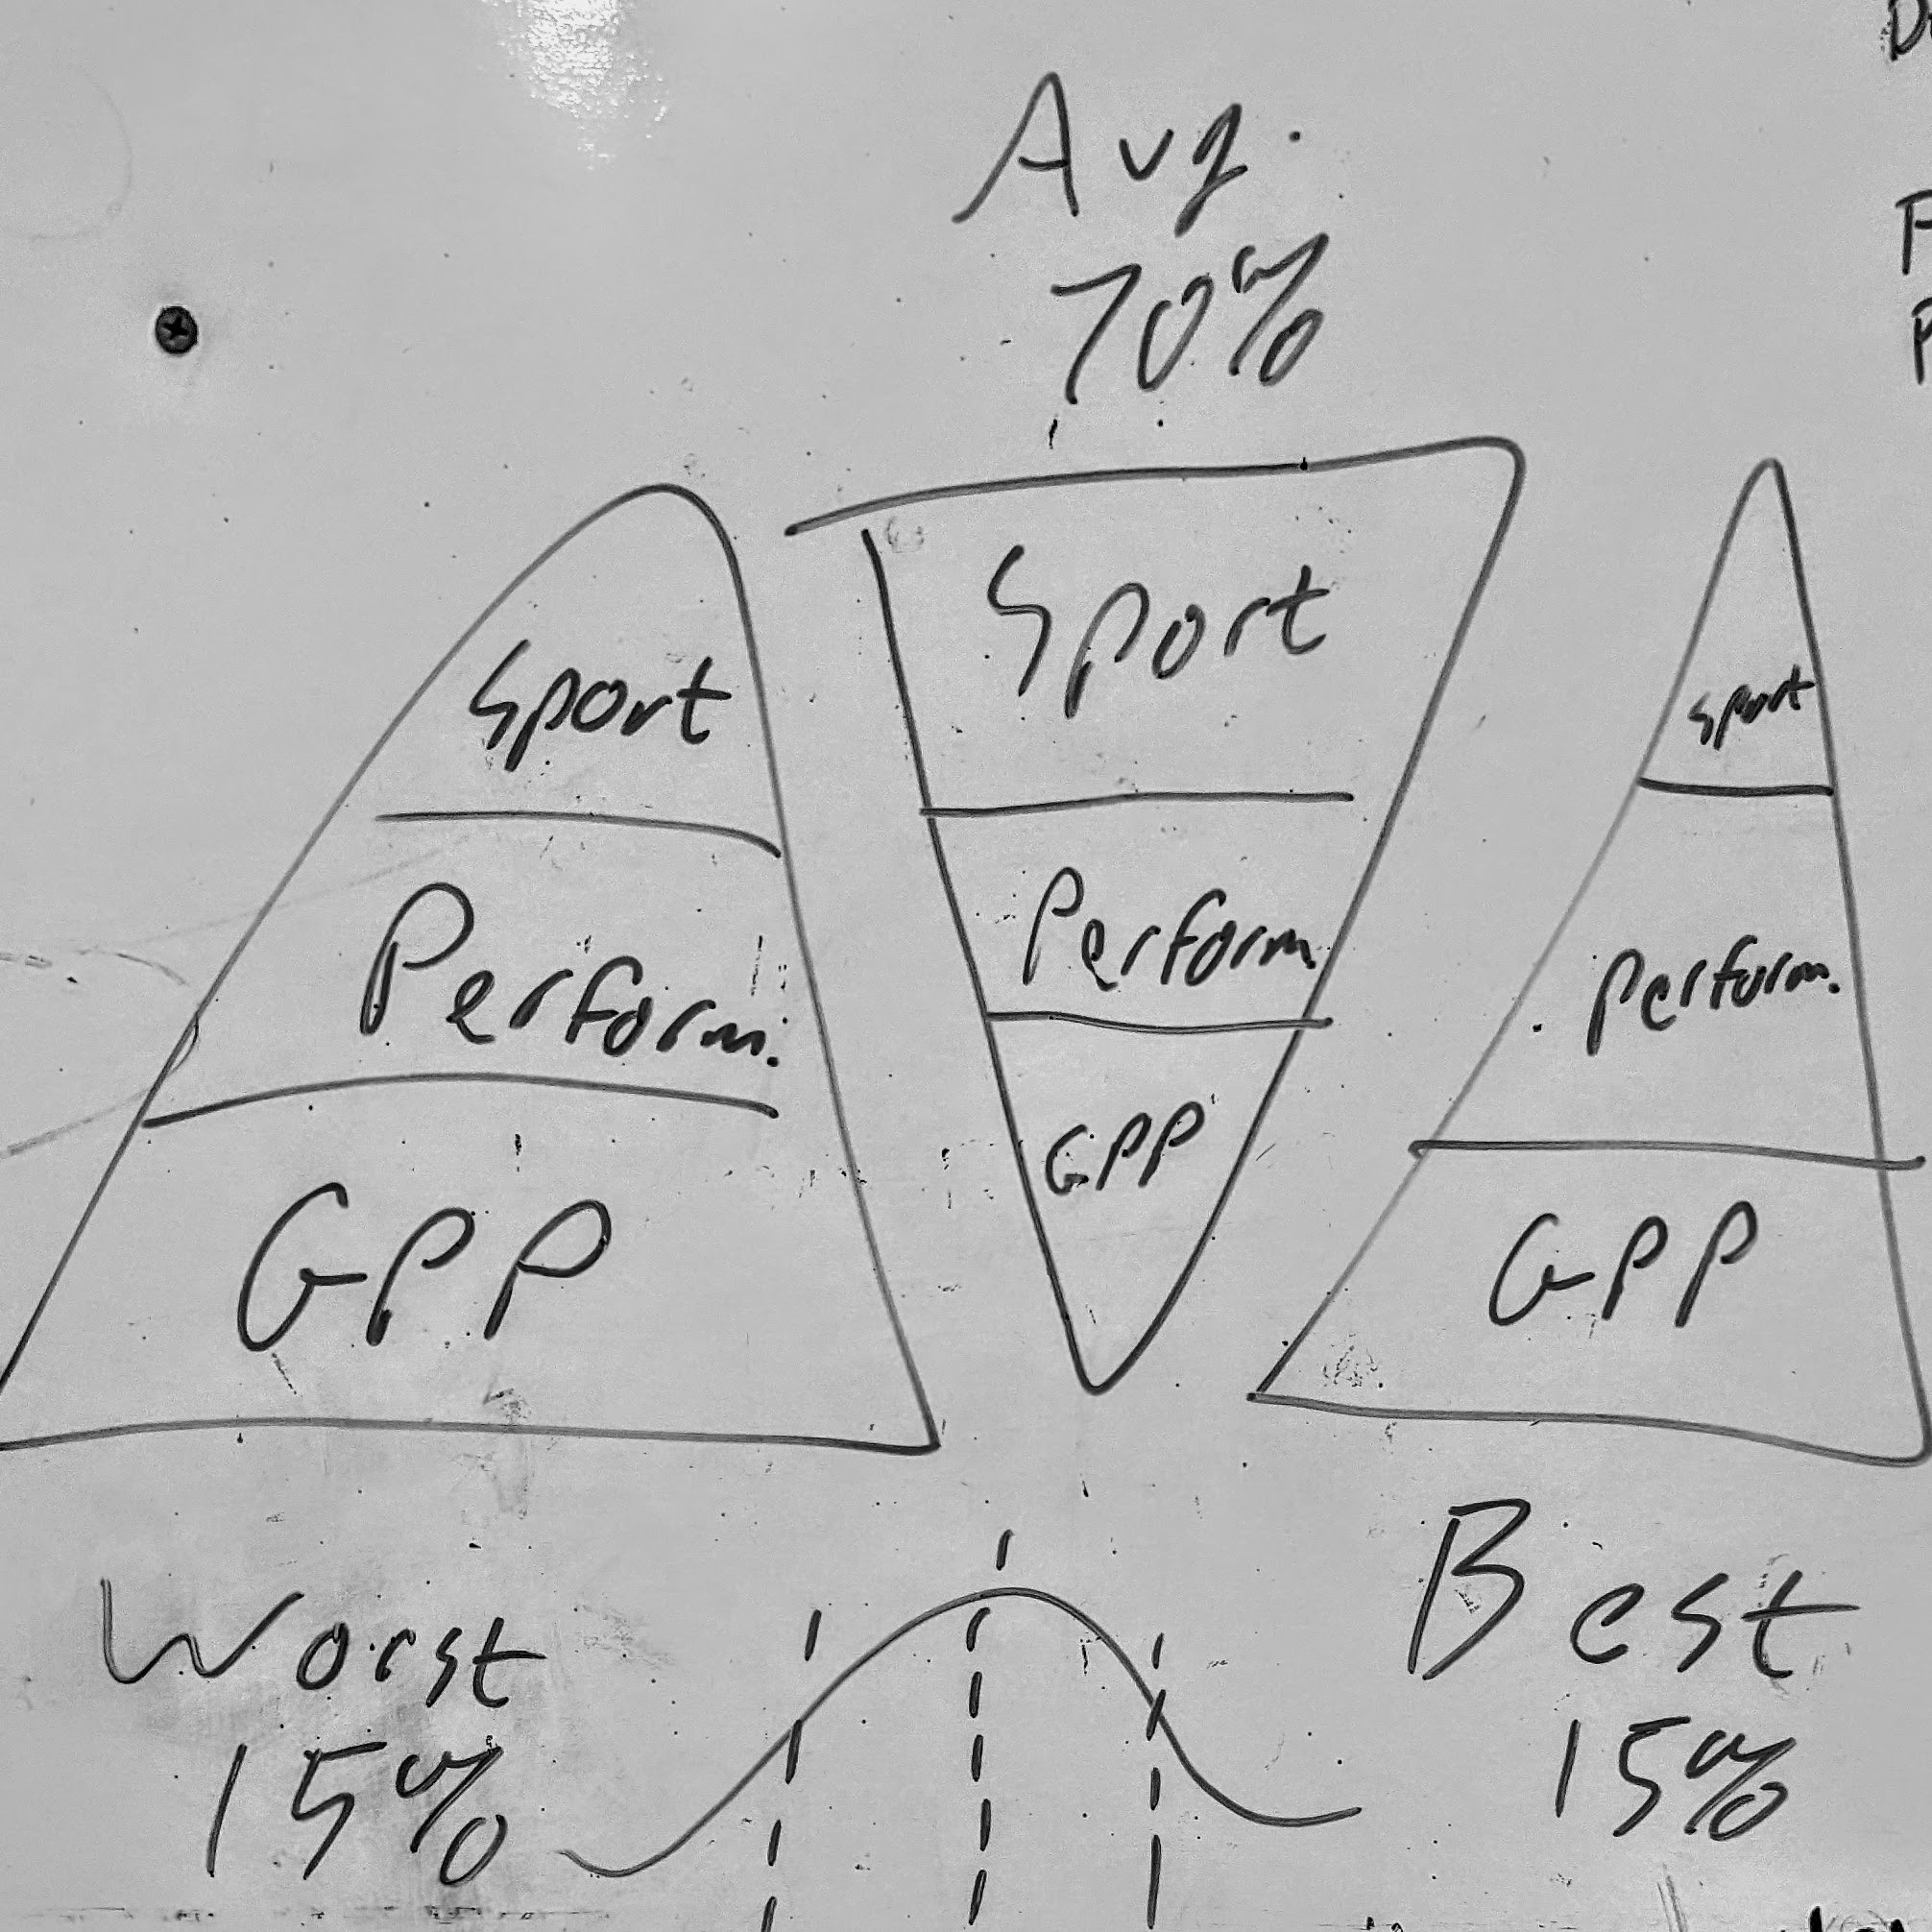 Avg.
70%
Sport
Perform.
GPP
Sport
Perform.
GPP
Sport
Perform.
GPP
Worst
15%
Best
15%